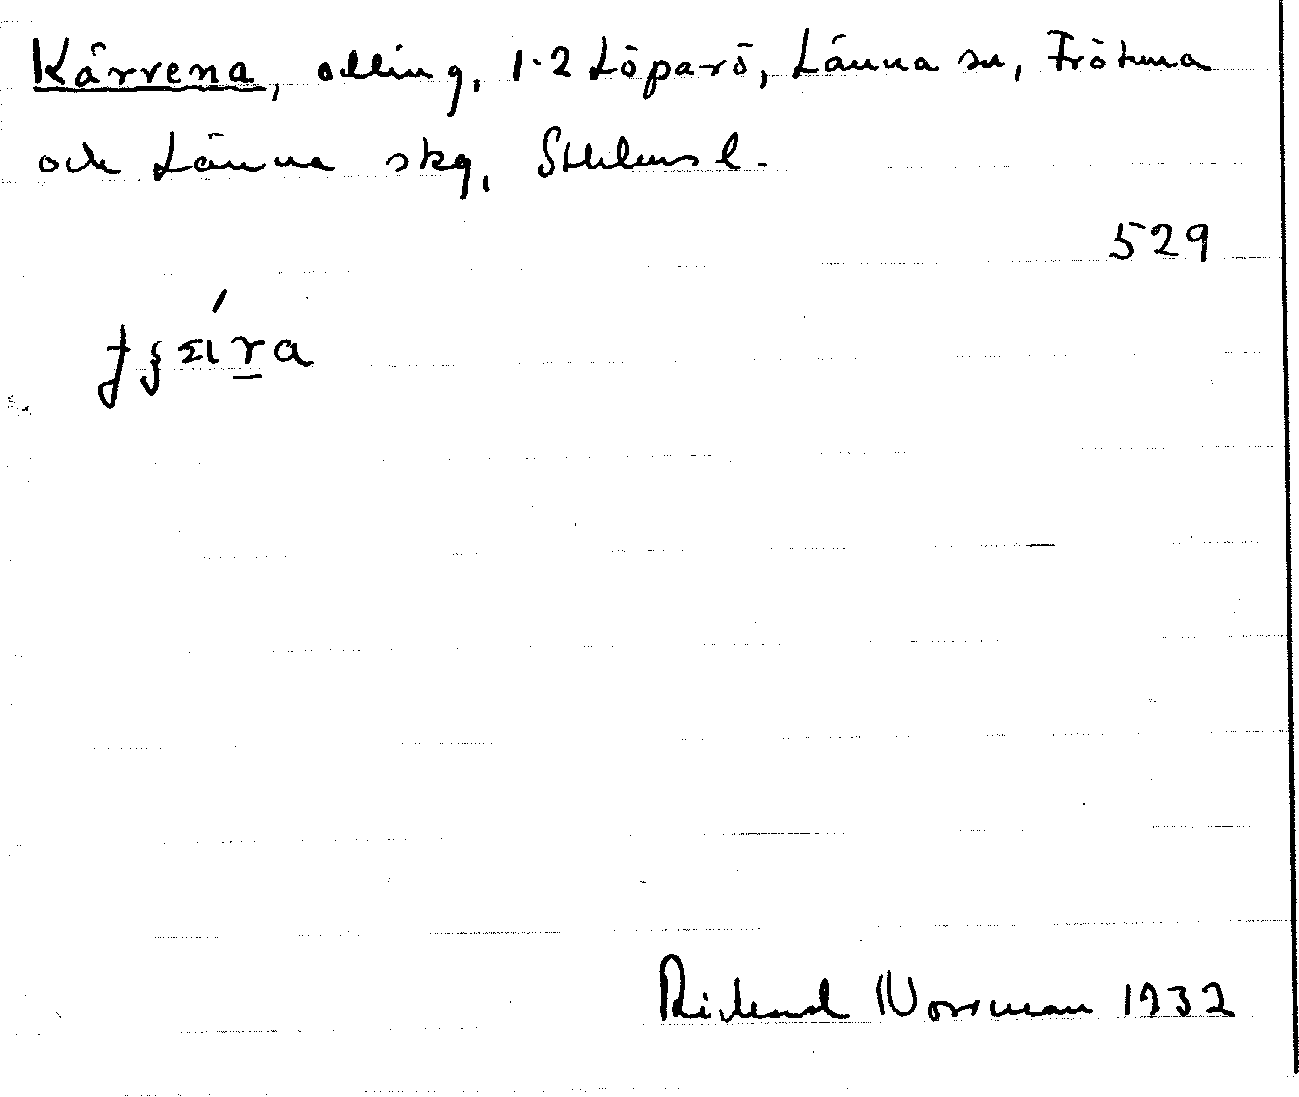 Kärrena, odling, 1-2 Löparö, Länna sn, Frötuna
och Länna skg, Sthlms l.
529
Rickard Norrman 1932